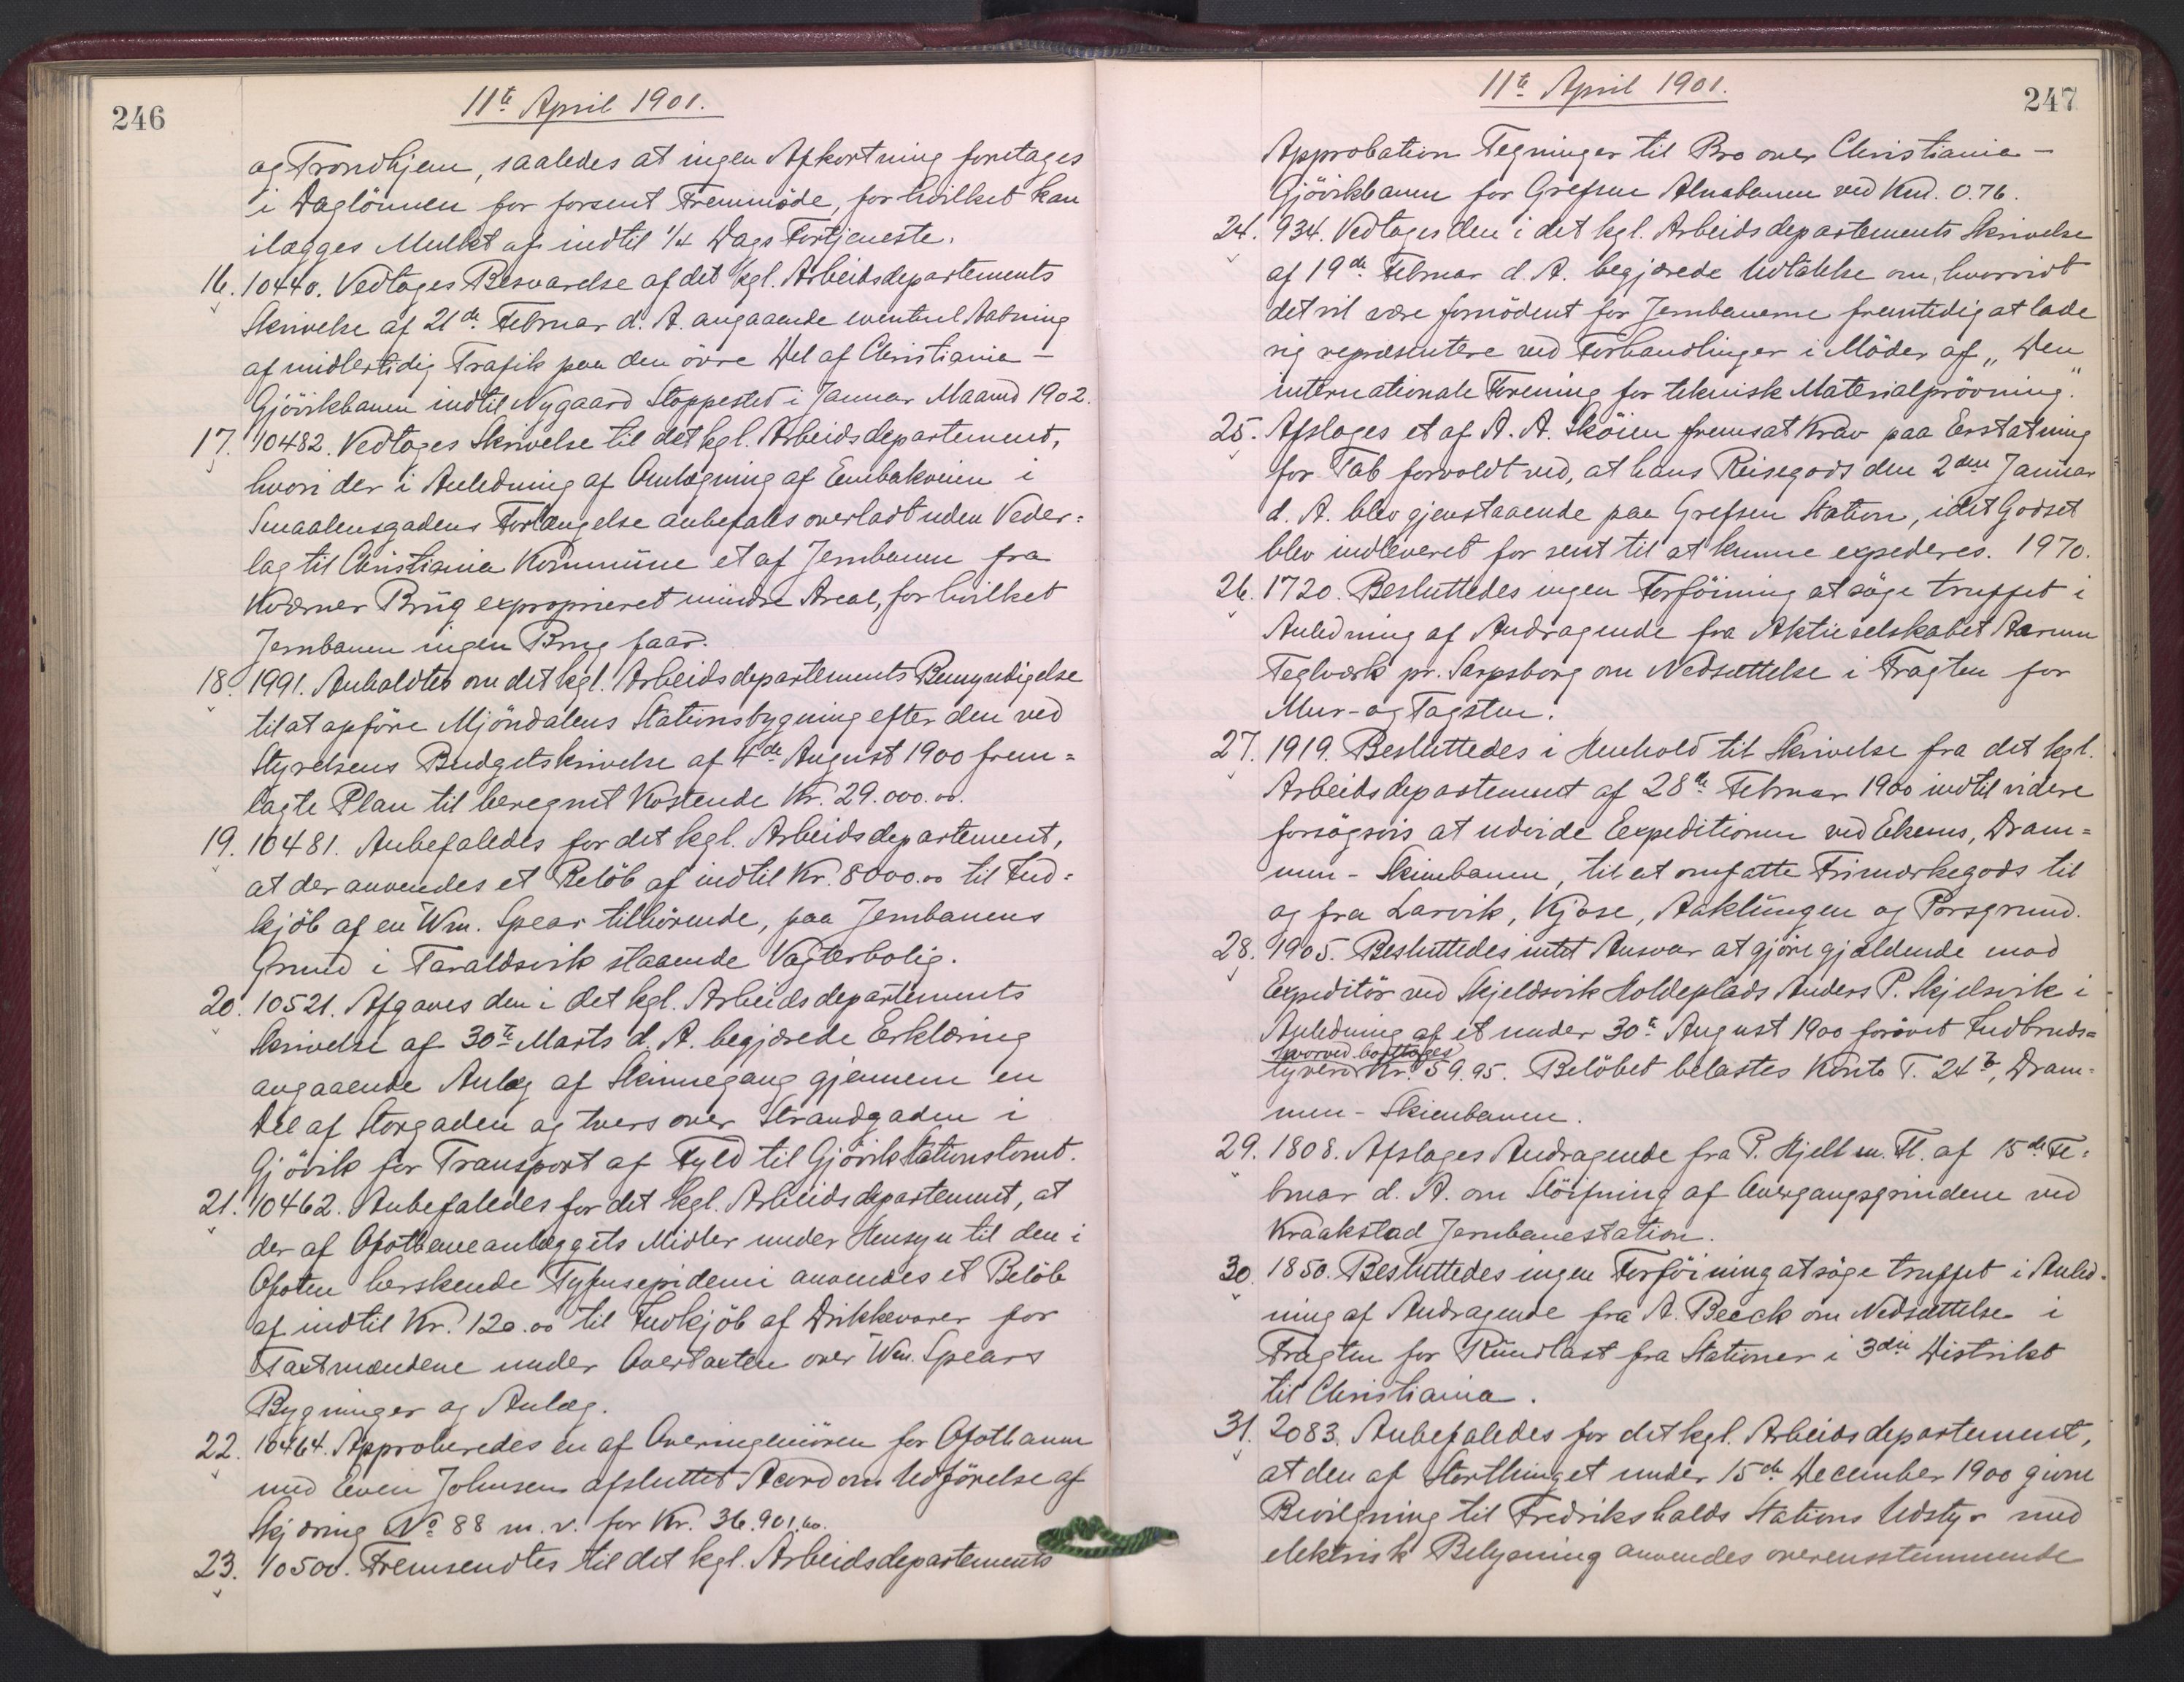 246
11te April 1901.
og Trondhjem, saaledes at ingen Afkortning foretages
i Daglönnen for forsent Fremmöde, for hvilket kan
ilægges Mulkt af indtil 1/4 Dags Fortjeneste.
16. 10440. Vedtoges Besvarelse af det kgl. Arbeidsdepartements
Skrivelse af 21de Februar d. A. angaaende eventuel Aabning
af midlertidig Trafik paa den övre Del af Christiania-
Gjövikbanen indtil Nygaard Stoppested i Januar Maaned 1902.
17. 10482. Vedtoges Skrivelse til det kgl. Arbeidsdepartement,
hvori der i Anledning af Omlægning af Enebakveien i
Smaalensgadens Forlængelse anbefales overladt uden Veder=
lag til Christiania Kommune et af Jernbanen fra
Kværner Brug exproprieret mindre Areal, for hvilket
Jernbanen ingen Brug faar.
18. 1991. Anholdtes om det kgl. Arbeidsdepartements Bemyndigelse
til at opföre Mjöndalens Stationsbygning efter den ved
Styrelsens Budgetskrivelse af 4de August 1900 frem=
lagte Plan til beregnet Kostende Kr. 29.000.00.
19. 10481. Anbefaledes for det kgl. Arbeidsdepartement,
at der anvendes et Belöb af indtil Kr. 8000.00 til Ind=
kjöb af en Wm. Spear tilhörende, paa Jernbanens
Grund i Taraldsvik staaende Vagterbolig.
20. 10521. Afgaves den i det kgl. Arbeidsdepartements
Skrivelse af 30te Marts d. A. begjærede Erklæring
angaaende Anlæg af Skinnegang gjennem en
Del af Storgaden og tvers over Strandgaden i
Gjövik for Transport af Fyld til Gjövik Stationstomt.
21. 10462. Anbefaledes for det kgl. Arbeidsdepartement, at
der af Ofotbaneanlæggets Midler under Hensyn til den i
Ofoten herskende Tyfusepidemi anvendes et Belöb
af indtil Kr. 120.00 til Indkjöb af Drikkevarer for
Taxtmændene under Overtaxten over Wm. Spears
Bygninger og Anlæg.
22. 10464. Approberedes en af Overingeniören for Ofotbanen
med Even Johnsen afsluttet Acord om Udförelse af
Skjæring No 88 m. v. for Kr. 36.901.60.
23. 10500. Fremsendtes til det kgl. Arbeidsdepartements
11te April 1901.
247
Approbation Tegninger til Bro over Christiania-
Gjövikbanen for Grefsen Alnabanen ved Km. 0.76.
24. 934. Vedtoges den i det kgl. Arbeidsdepartements Skrivelse
af 19de Februar d. A. begjærede Udtalelse om, hvorvidt
det vil være fornödent for Jernbanerne fremtidig at lade
sig repræsentere ved Forhandlinger i Möder af „Den
internationale Forening for teknisk Materialprövning."
25. Afsloges et af A. A. Sköien fremsat Krav paa Erstatning
for Tab forvoldt ved, at hans Reisegods den 2den Januar
d. A. blev gjenstaaende paa Grefsen Station, idet Godset
blev indleveret for sent til at kunne expederes. 1970.
26. 1720. Besluttedes ingen Forföining at söge truffet i
Anledning af Andragende fra Aktieselskabet Aarum
Teglværk pr. Sarpsborg om Nedsættelse i Fragten for
Mur- og Tagsten.
27. 1919. Besluttedes i Henhold til Skrivelse fra det kgl.
Arbeidsdepartement af 28de Februar 1900 indtil videre
forsögsvis at udvide Expeditionen ved Ekerns, Dram=
men-Skienbanen, til at omfatte Frimærkegods til
og fra Larvik, Kjose, Aaklungen og Porsgrund.
28. 1905. Besluttedes intet Ansvar at gjöre gjældende mod
Expeditör ved Skjeldsvik Holdeplads Anders P. Skjelsvik i
Anledning af et under 30te August 1900 forövet Indbruds=
hvorved borttoges
tyveri Kr. 59.95. Belöbet belastes Konto T. 24b, Dram=
men-Skienbanen.
29. 1808. Afsloges Andragende fra P. Hjell m. Fl. af 15de Fe=
bruar d. A. om Slöifning af Overgangsgrindene ved
Kraakstad Jernbanestation.
30. 1850. Besluttedes ingen Forföining at söge truffet i Anled=
ning af Andragende fra A. Beeck om Nedsættelse i
Fragten for Rundlast fra Stationer i 3die Distrikt
til Christiania.
31. 2083. Anbefaledes for det kgl. Arbeidsdepartement,
at den af Storthinget under 15de December 1900 givne
Bevilgning til Fredrikshalds Stations Udstyr med
elektrisk Belysning anvendes overensstemmende